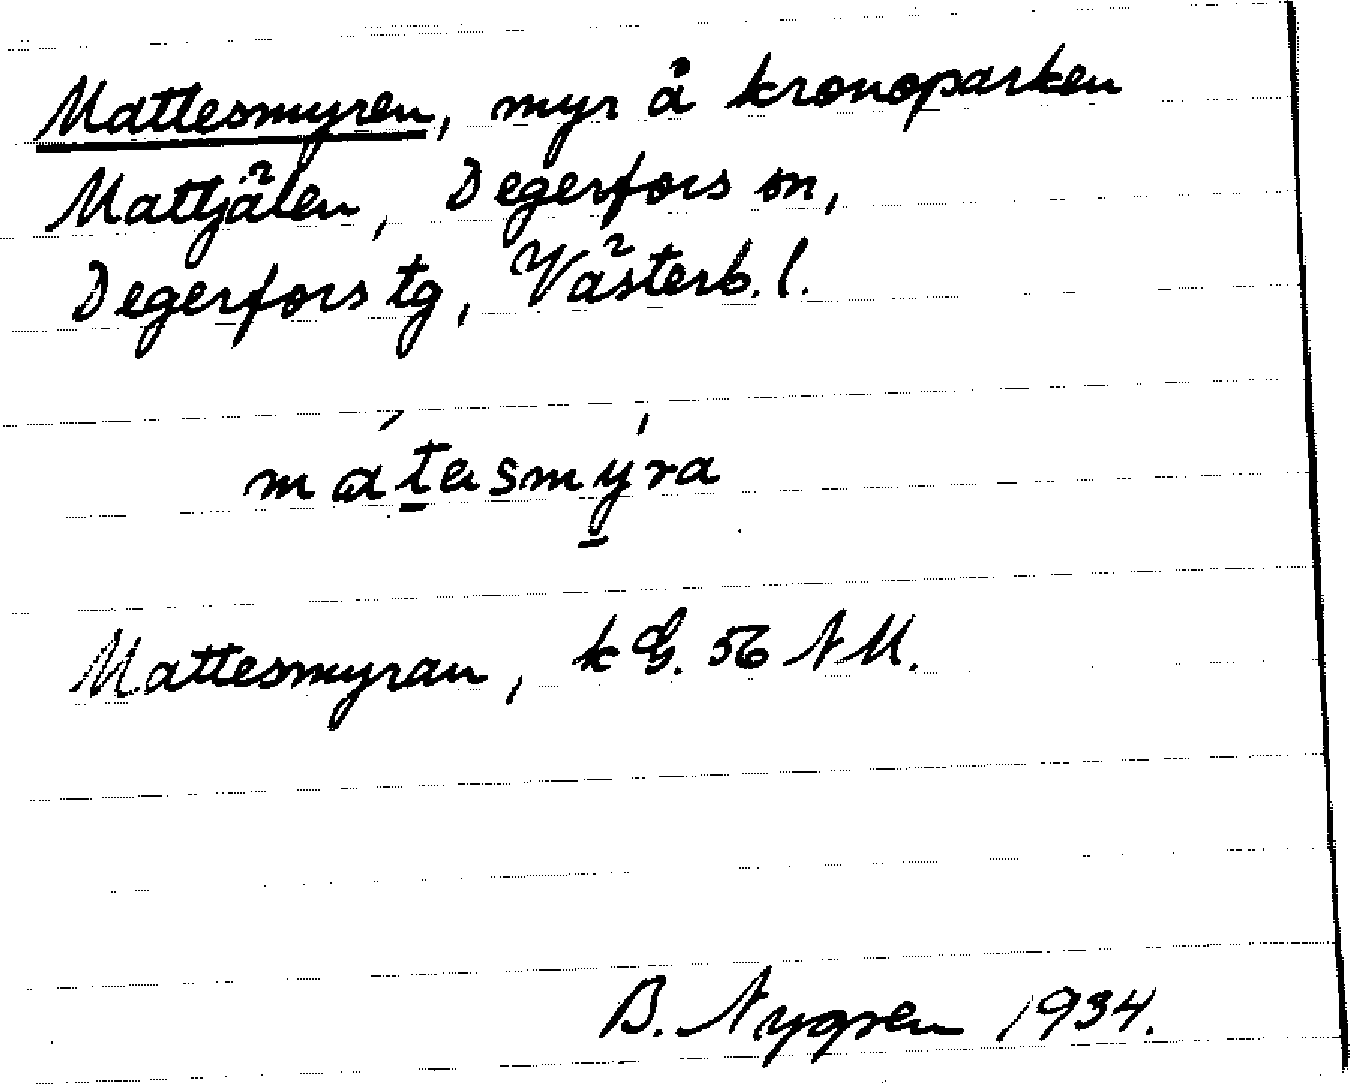 Mattesmyren, myr å kronoparken
Mattjälen, Degerfors sn,
Degerfors tg, Västerb. l.
matasmyra
Mattesmyran, k G. 56 N M.
B. Nygren 1934.